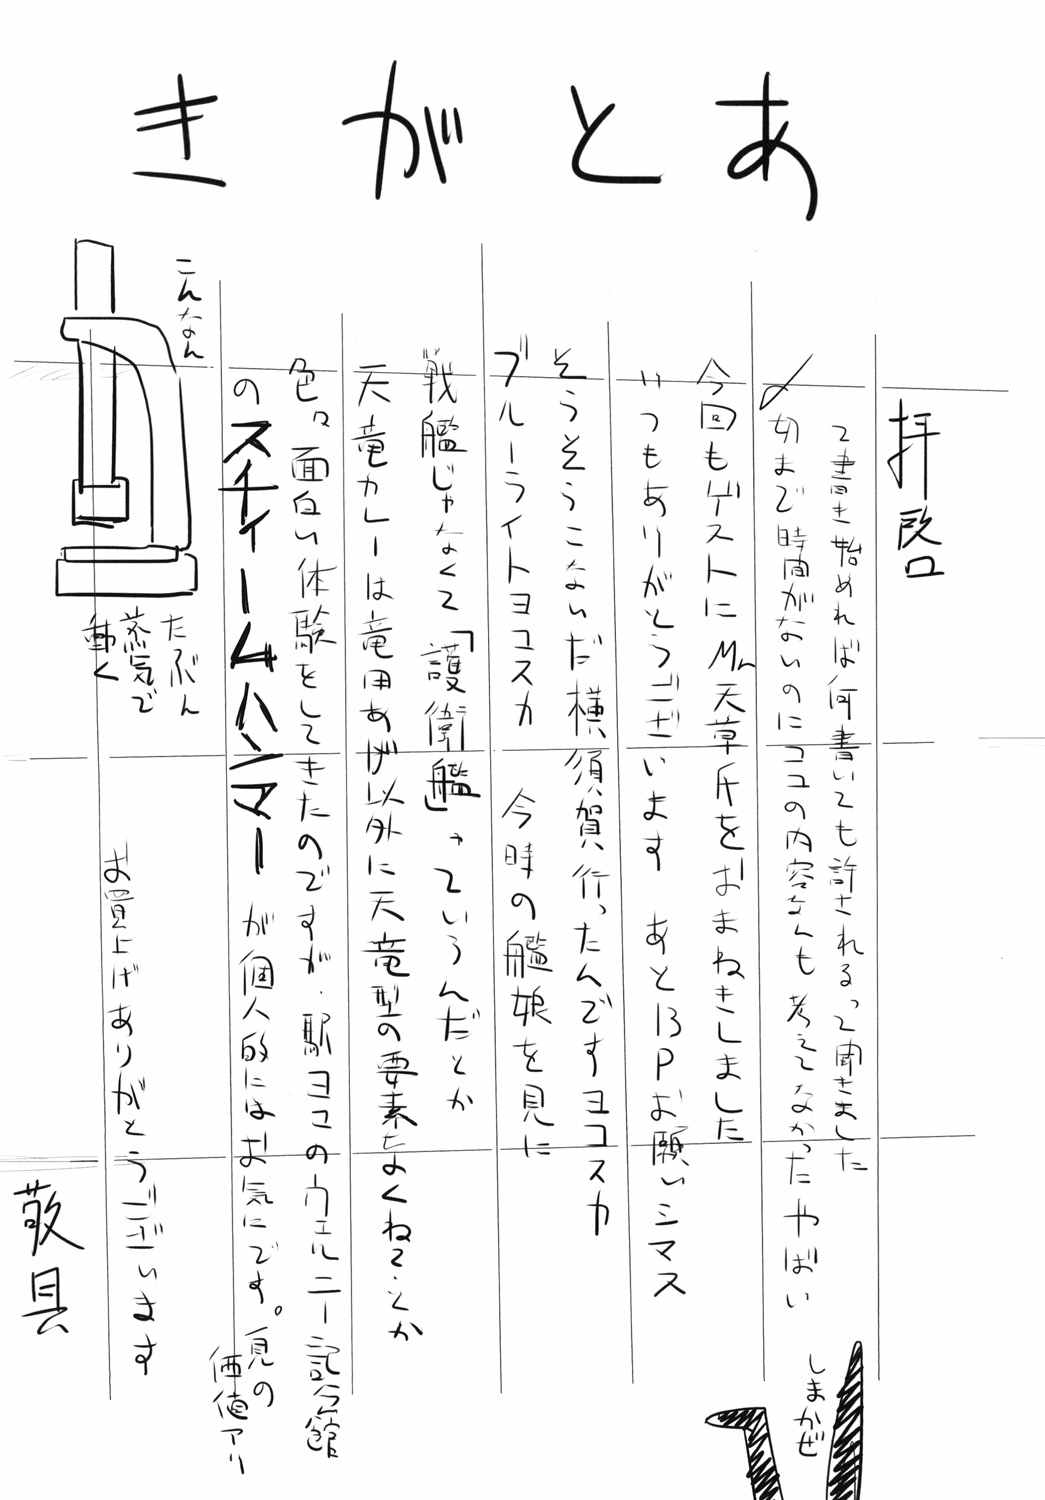 あとがき
拝啓
って書き始めれば何書いても許されるって聞きました
〆切まで時間がないのにココの内容なんも考えてなかったやばい
今回もゲストにMr天草氏をおまねきしました
いつもありがとうございます あと13Pお願いシマス
そうそうこないだ横須賀行ったんですヨコスカ
ブルーライトヨコスカ 今時の艦娘を見に
戦艦じゃなくて「護衛艦」っていうんだとか
天竜カレーは竜田あげ以外に天竜型の要素なくねて・とか
色々面白い体験をしてきたのですが・駅ヨコのヴェルニー記念館
のスチィームハンマーが個人的にはお気にです。見の
価値アリ
こんなん
たぶん
蒸気で
動く
お買上げありがとうございます
敬具
しまかぜ